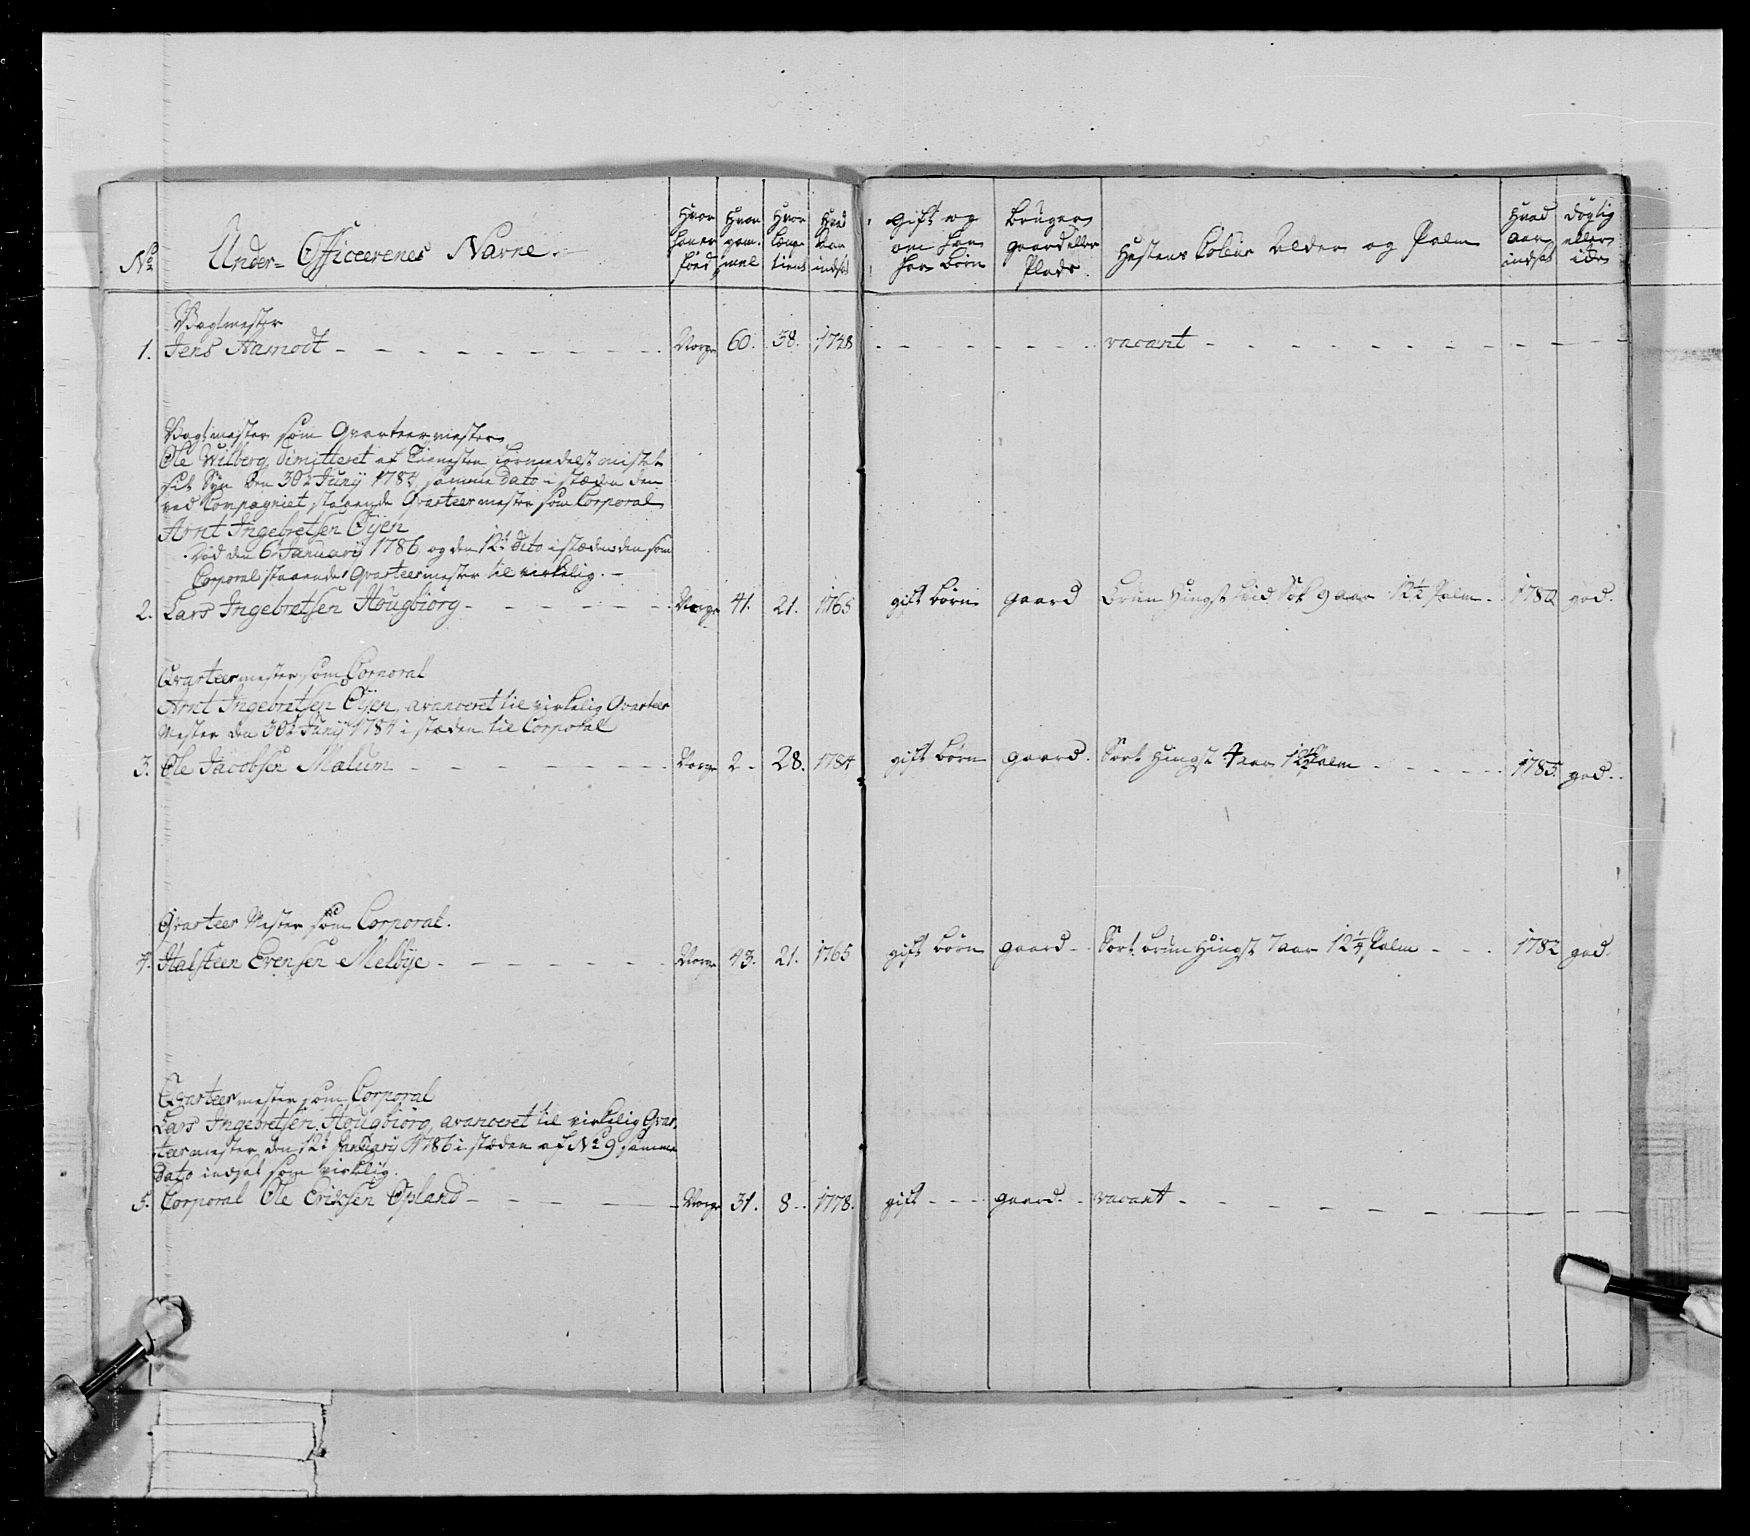 No
Under-Officeerenes Navne.
Hvor han er fød
Hvor gam- mel
Hvor længe tient
Hvad Aar indsat
gift og om han har Børn
Bruger gaard eller Plads
Hestens Coleur Alder og Palm
Hvad aar indsat
dygtig eller ide
Vagtmester
1. Jens Aamodt - - - Norge 60. 38. 1748 - - - vacant - - -
Vagtmester som Qvarteermester
Ole Wilberg, dimitteret af Tienesten formedelst mistet
sit Syn den 30te Junij 1784, samme Dato i stæden den
ved Compagniet staaende Qvarteermester som Corporal
Arnt Ingebretsen Öyen
Död den 6te Januarij 1786 og den 12te dito i stæden den som
Corporal staaende Qvarteermester til virkelig. -
2. Lars Ingebretsen Hougbiörg - - - Norge 41. 21. 1765 gift Börn gaard Brun Hingst 9 aar 12½ Palm - 1780 god.
Qvarteermester som Corporal
Arnt Ingebretsen Öyen, avanceret til virkelig Qvarteer
Mester den 30te Junij 1784 i stæden til Corporal
3. Ole Jacobsen Mælum - - - Norge 2 - 28. 1784 gift Börn gaard. Sort Hingst 4 aar 12½ Palm - - - 1785. god.
Qvarteer Mester som Corporal.
4. Halsteen Evensen Melbye - - - Norge 43. 21. 1765 gift Börn gaard - Sort brun Hingst 7 aar 12¼ Palm - - - 1782 god.
Qvarteermester som Corporal
Lars Ingebretsen Hougbiörg, avanceret til virkelig Qvar-
teermester den 12te Januarij 1786 i stæden af No 9 samme
Dato indsat som virkelig.
5. Corporal Ole Eriksen Opland - - - Norge 31. 8 - 1778. gift - - - gaard. - vacant - - -